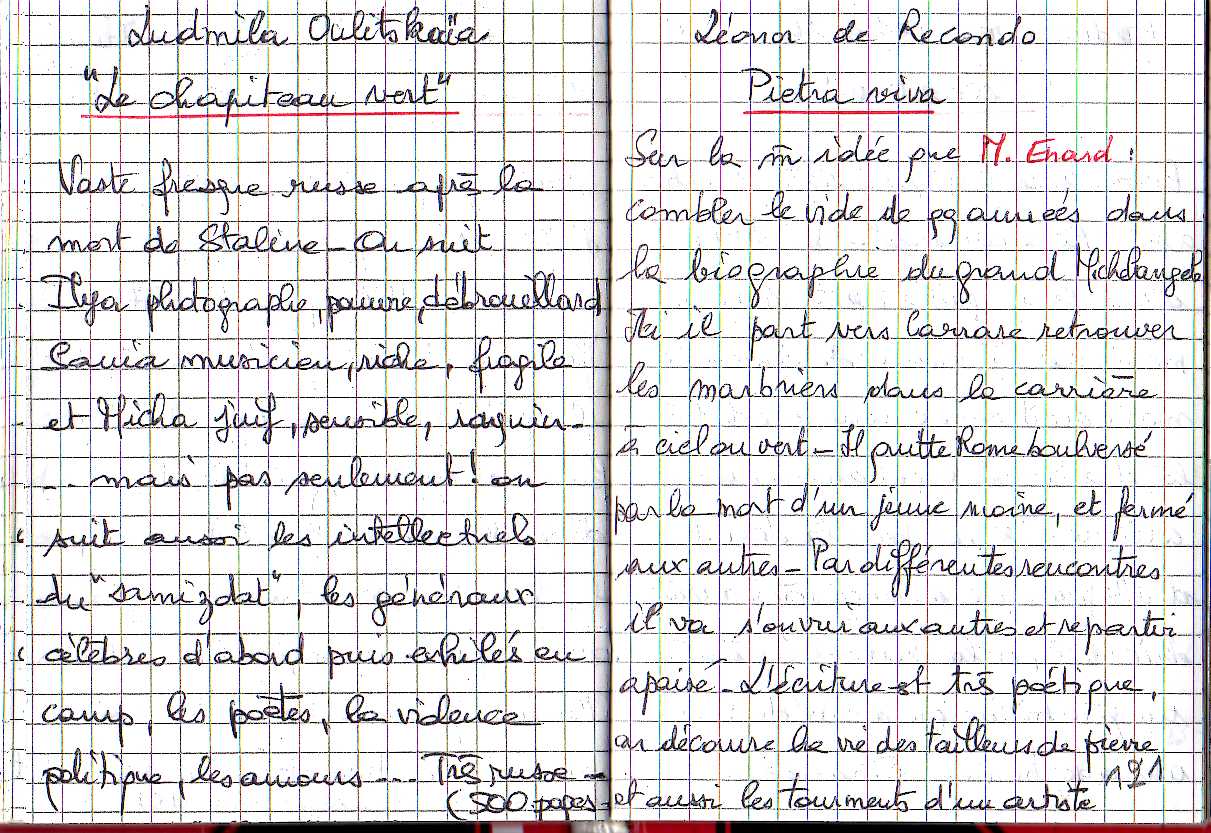 Ludmila Oulitskaïa
"Le chapiteau vert"
Vaste fresque russe après la
mort de Staline - On suit
Ilya photographe, pauvre, débrouillard
Sania musicien, riche, fragile
et Micha juif, sensible, rouquin -
... mais pas seulement ! on
suit aussi les intellectuels
du "samizdat", les généraux
célèbres d'abord puis exhilés en
camp, les poètes, la violence
politique, les amours ... Très russe -
(500 pages -
Léonor de Recondo
Pietra viva
Sur la m̄ idée que M. Enard :
combler le vide de qq années dans
la biographie du grand Michelangelo
Ici il part vers Carrare retrouver
les marbriers dans la carrière
à ciel ouvert - Il quitte Rome boulversé
par la mort d'un jeune moine, et fermé
aux autres - Par différentes rencontres
il va s'ouvrir aux autres et repartir
apaisé - L'écriture est très poétique,
on découvre la vie des tailleurs de pierre
et aussi les tourments d'un artiste
121